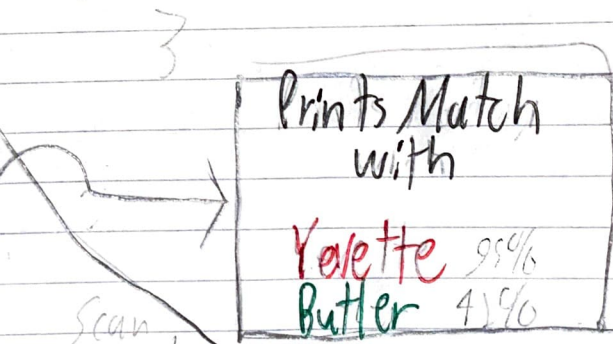 3
Prints Match
with
Yevette 95%
Butler 41%
Scan